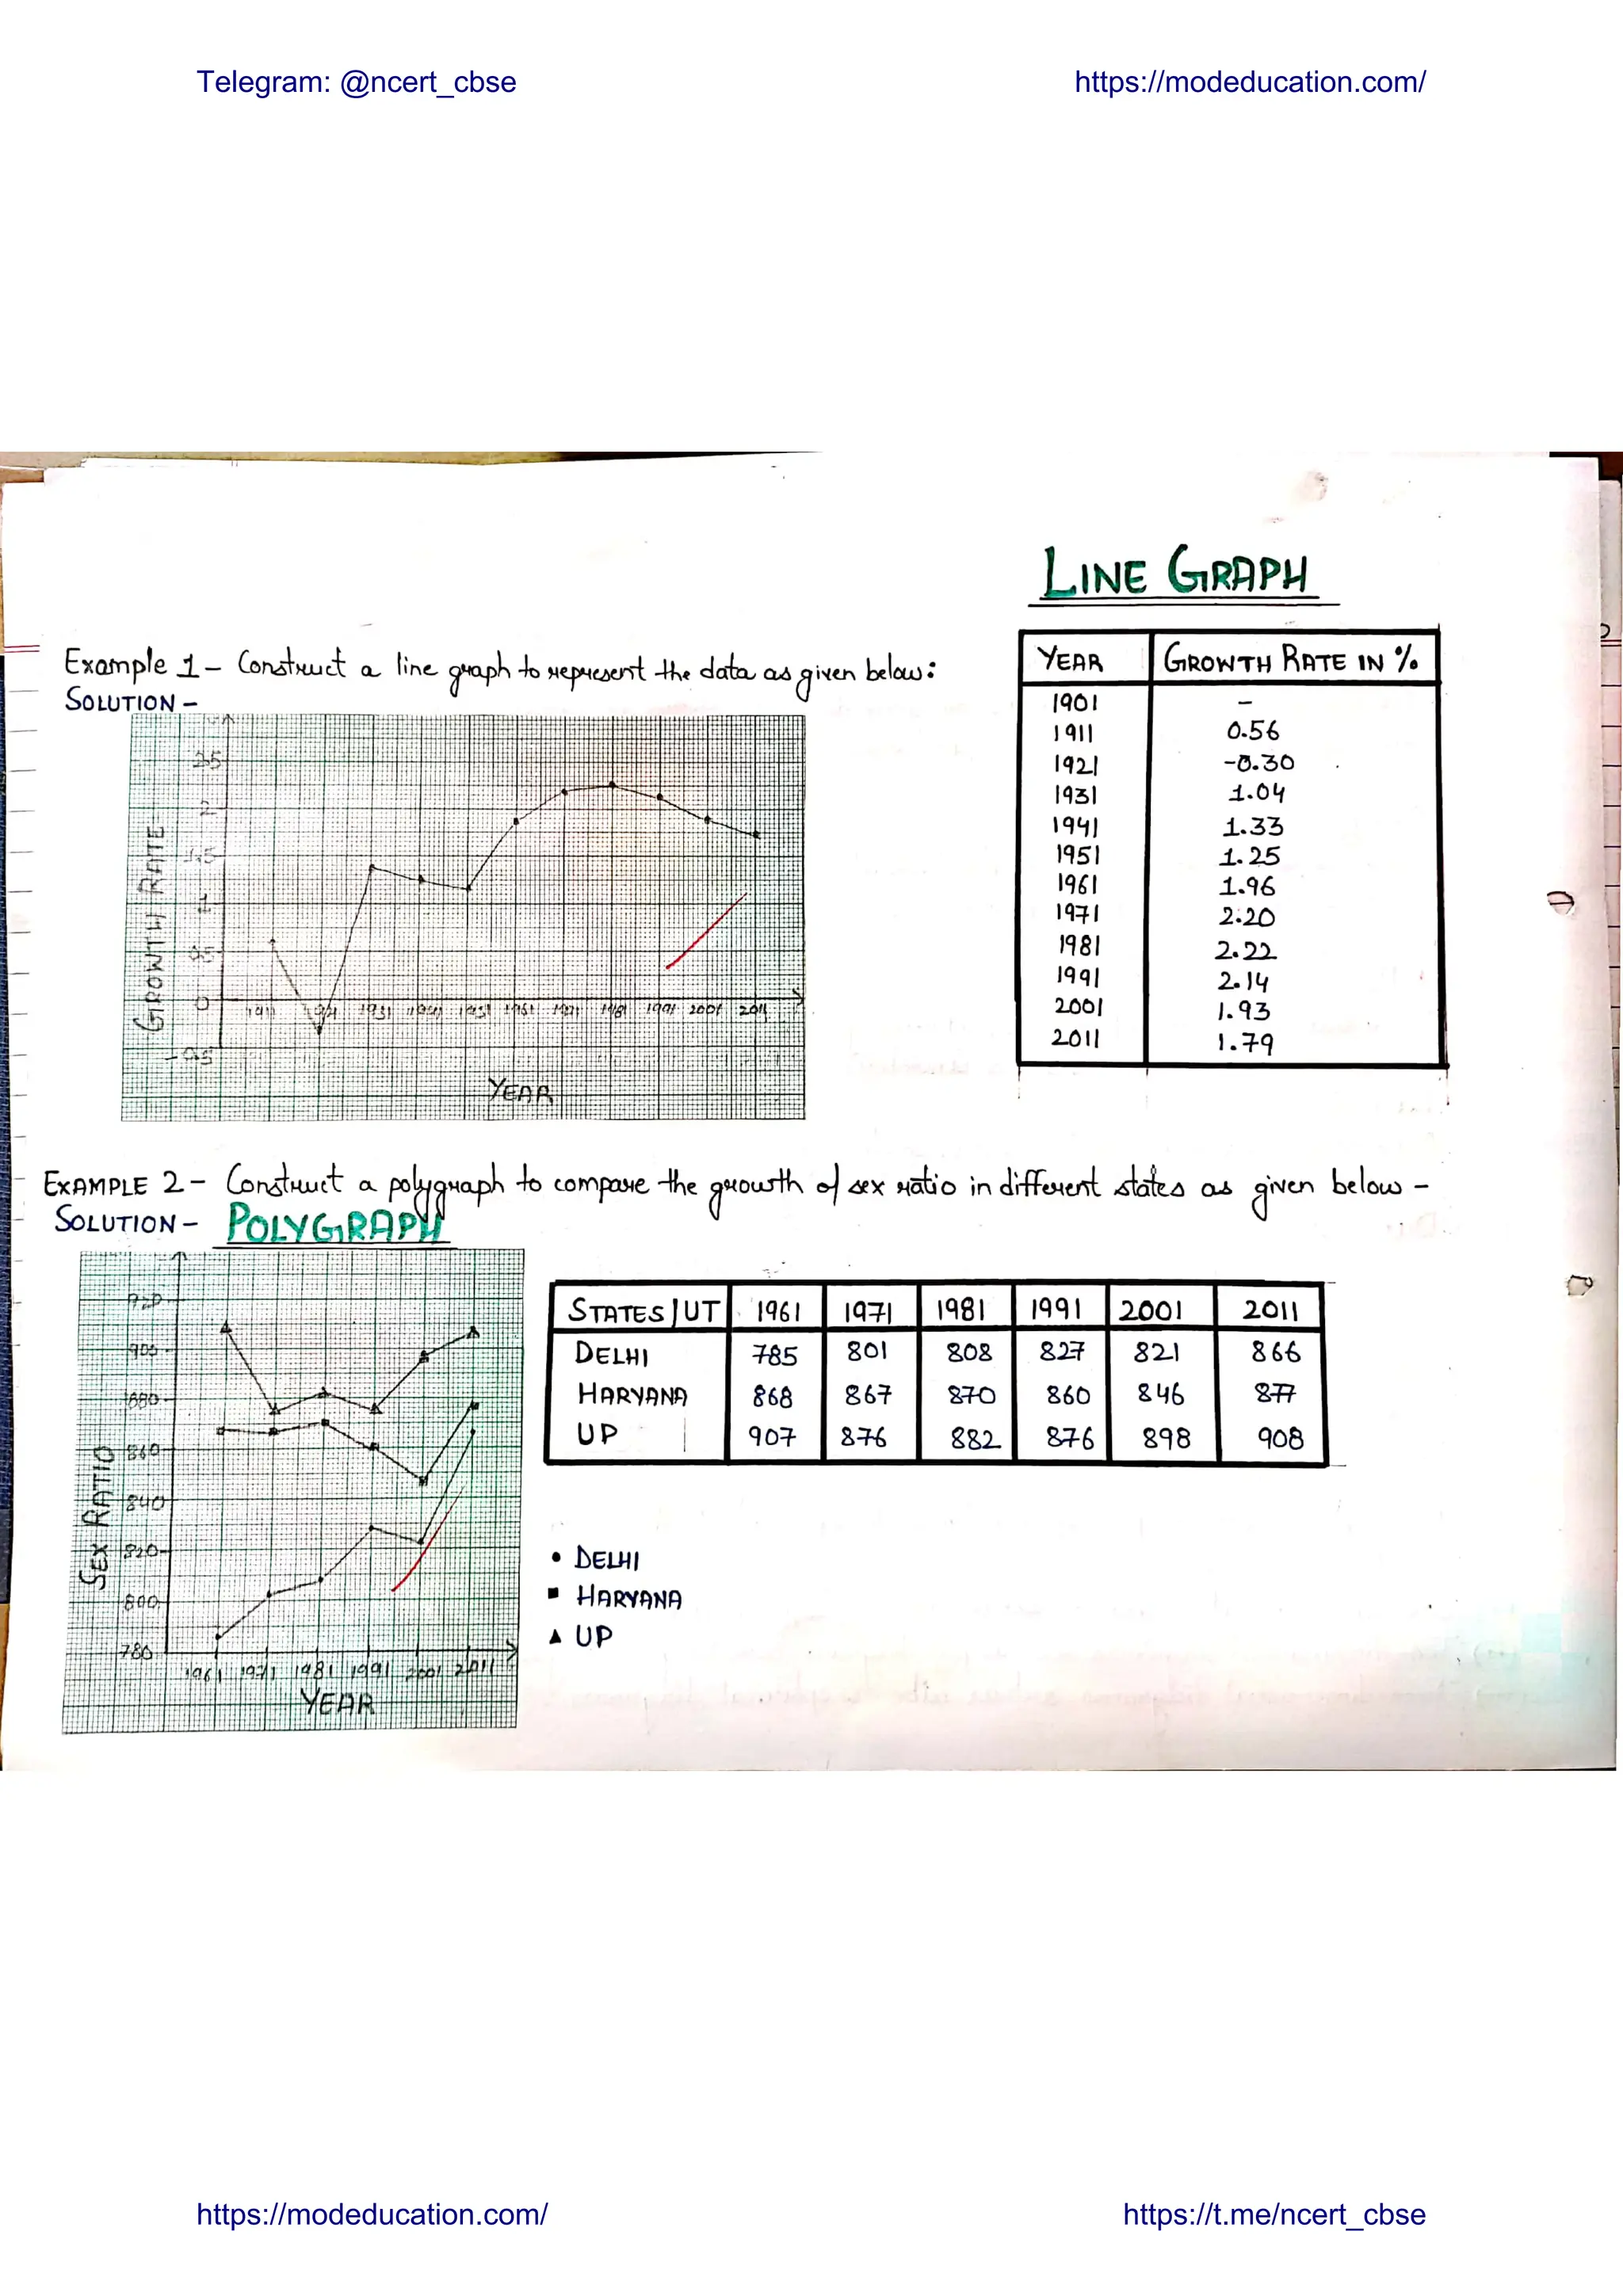 Telegram: @ncert_cbse https://modeducation.com/
LINE GRAPH
Example 1 - Construct a line graph to represent the data as given below:
SOLUTION -
YEAR GROWTH RATE IN %
1901 -
1911 0.56
1921 -0.30
1931 1.04
1941 1.33
1951 1.25
1961 1.96
1971 2.20
1981 2.22
1991 2.14
2001 1.93
2011 1.79
GROWTH RATE
2.5
2
1.5
1
0.5
0
-0.5
1911 1921 1931 1941 1951 1961 1971 1981 1991 2001 2011
YEAR
EXAMPLE 2 - Construct a polygraph to compare the growth of sex ratio in different states as given below -
SOLUTION - POLYGRAPH
SEX RATIO
920
900
880
860
840
820
800
780
1961 1971 1981 1991 2001 2011
YEAR
STATES/UT 1961 1971 1981 1991 2001 2011
DELHI 785 801 808 827 821 866
HARYANA 868 867 870 860 846 877
UP 907 876 882 876 898 908
• DELHI
■ HARYANA
▲ UP
https://modeducation.com/ https://t.me/ncert_cbse